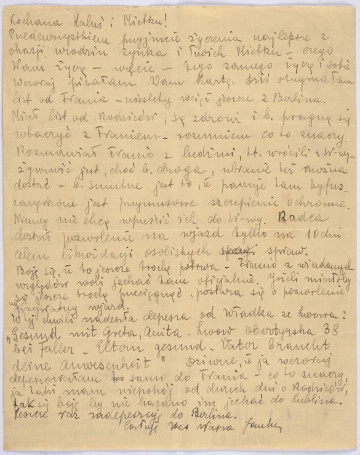 Kochana Haluś i Mietku!
Przedewszystkiem przyjmcie życzenia najlepsze z
okazji urodzin synka i Twoich Mietku – czego
Wam życzę – wiecie – tego samego życzę i sobie
Wczoraj pisałam Wam kartę. Dziś otrzymałam
list od Frania – niestety wciąż jeszcze z Berlina.
Miał list od Rodziców, są zdrowi i b. pragną się
zobaczyć z Franiem – rozumiem co to znaczy
Rozmawiał Franio z ludźmi, kt. wrócili z W-wy.
żywność jest, choć b. droga, ubranie też można
dostać – b. smutne jest to, że panuje tam tyfus
zarządzone jest przymusowe szczepienie ochronne.
Niemcy nie chcą wpuścić ich do W-wy. Radca
dostał pozwolenie na wjazd tylko na 10 dni
celem likwidacji osobistych spraw.
Boję się, że to jeszcze trochę potrwa – Franio z wiadomych
względów woli jechać tam oficjalnie. Jeśli mieliby
się jeszcze trochę przeciągnąć, postara się o pozwolenie
prywatny wyjazd.
W tej chwili nadeszła depesza od Władka ze Lwowa:
"Gesund mit Greta, Anita – Lwow Obertynska 38
bei Faller – Eltern gesund. Vater braucht
deine Anwesenheit" Dziwne, że ja wczoraj
depeszowałam to samo do Frania – co to znaczy
ja taki mam niepokój od dwuch dni o Rodziców,
tak się boję by nie kazano im jechać do Lublina.
Jeszcze raz zadepeszuję do Berlina.
Całuję Was Wasza